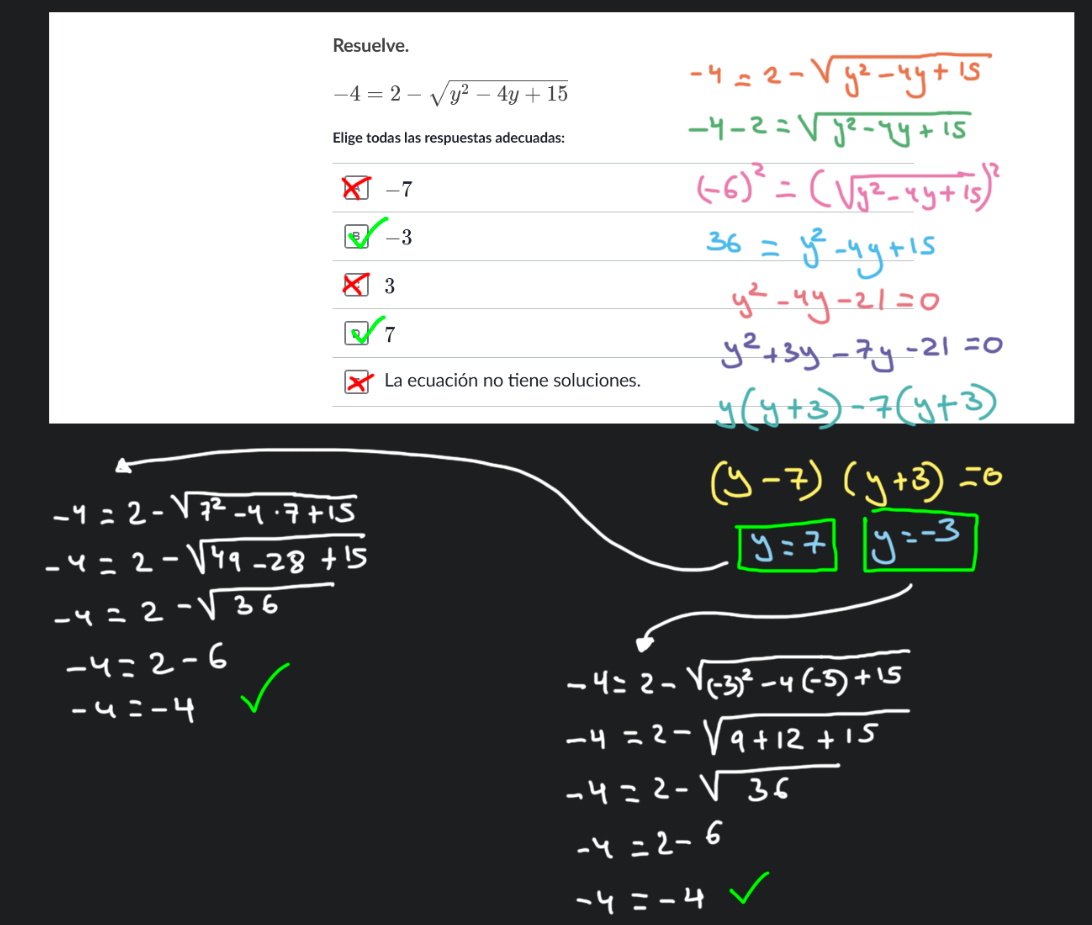 Resuelve.
−4 = 2 − √(y² − 4y + 15)
Elige todas las respuestas adecuadas:
−7
B −3
3
D 7
La ecuación no tiene soluciones.
-4 = 2 - √(y² - 4y + 15)
-4 - 2 = √(y² - 4y + 15)
(-6)² = (√(y² - 4y + 15))²
36 = y² - 4y + 15
y² - 4y - 21 = 0
y² + 3y - 7y - 21 = 0
y(y+3) - 7(y+3)
(y - 7) (y + 3) = 0
y = 7 y = -3
-4 = 2 - √(7² - 4·7 + 15)
-4 = 2 - √(49 - 28 + 15)
-4 = 2 - √36
-4 = 2 - 6
-4 = -4
-4 = 2 - √((-3)² - 4(-3) + 15)
-4 = 2 - √(9 + 12 + 15)
-4 = 2 - √36
-4 = 2 - 6
-4 = -4